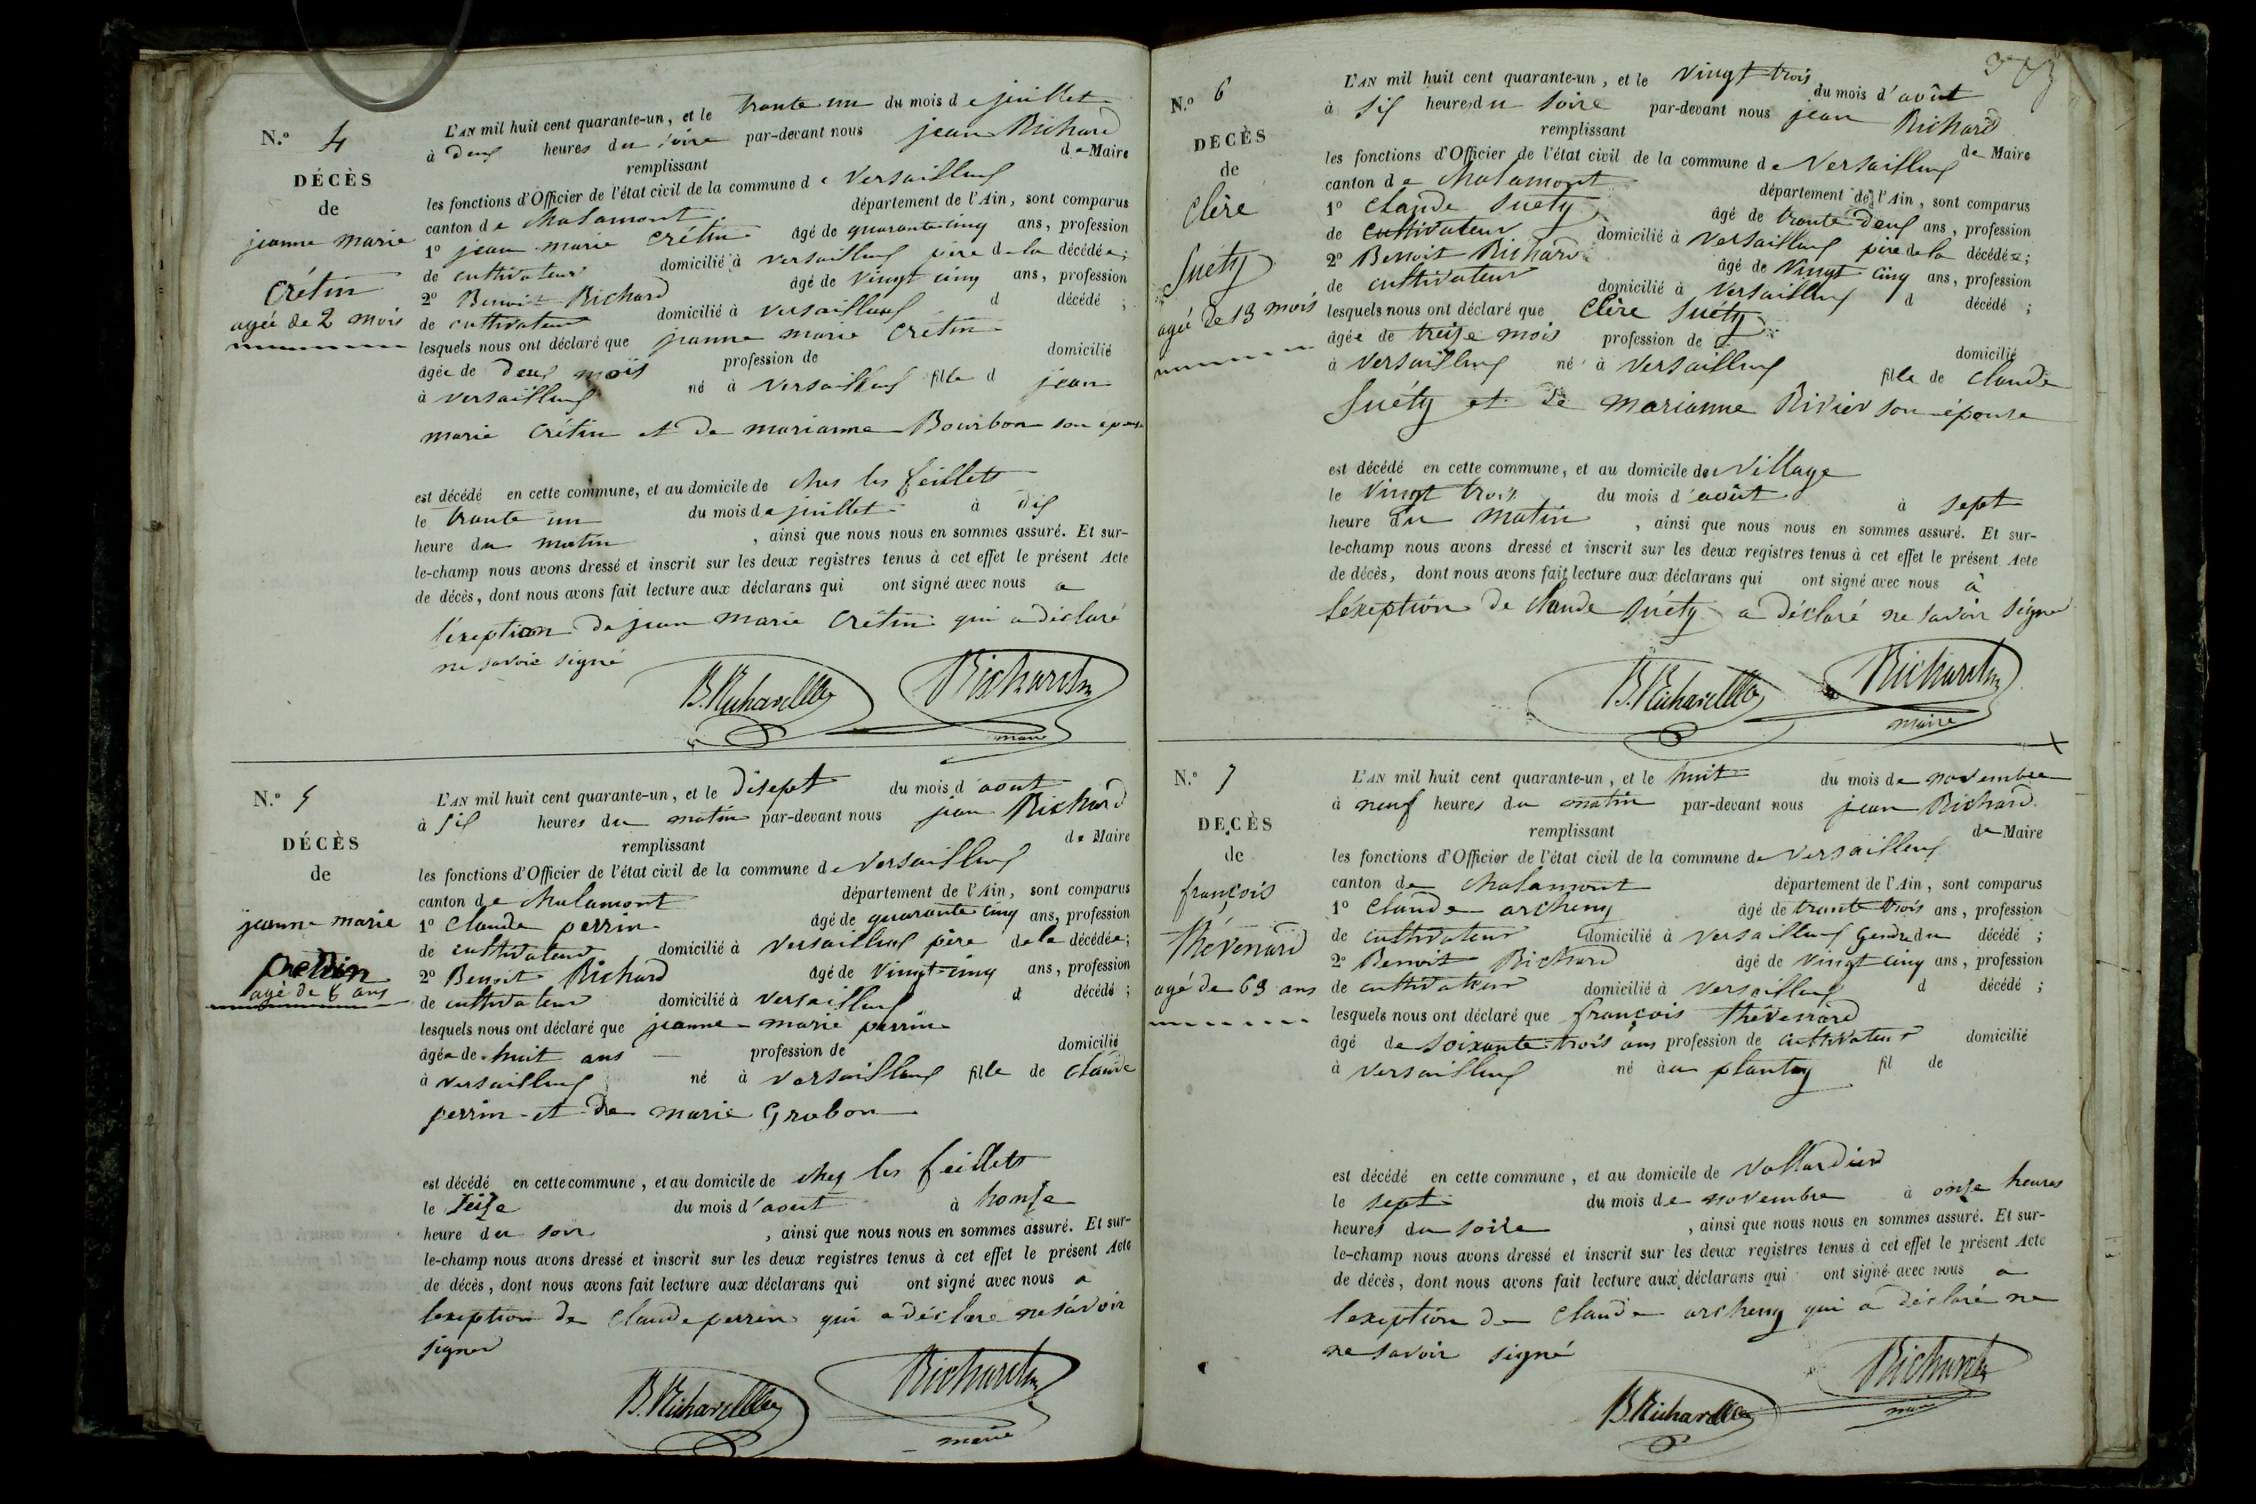 N.º 4
DÉCÈS
de
jeanne marie
Crétin
agée de 2 mois
L'AN mil huit cent quarante-un, et le trante un du mois de juillet
à deux heures du soire par-devant nous jean Richard
remplissant de Maire
les fonctions d'Officier de l'état civil de la commune de Versailleux
canton de Chalamont département de l'Ain, sont comparus
1º jean marie Crétin âgé de quarante cinq ans, profession
de cultivateur domicilié à versailleux père de la décédée;
2º Benoit Richard âgé de vingt cinq ans, profession
de cultivateur domicilié à versailleux d décédé ;
lesquels nous ont déclaré que jeanne marie Crétin
âgée de deux mois profession de domicilié
à versailleux né à versailleux fille d jean
marie Crétin et de marianne Bourbon son épouse
est décédé en cette commune, et au domicile de ches les feillets
le trante un du mois de juillet à dix
heure du matin , ainsi que nous nous en sommes assuré. Et sur-
le-champ nous avons dressé et inscrit sur les deux registres tenus à cet effet le présent Acte
de décès, dont nous avons fait lecture aux déclarans qui ont signé avec nous a
l'exeption de jean marie Crétin qui a déclaré
ne savoir signé
B. Richard Richard
maire
N.º 5
DÉCÈS
de
jeanne marie
perrin
agé de 8 ans
L'AN mil huit cent quarante-un, et le disept du mois d'aout
à six heures du matin par-devant nous jean Richard
remplissant de Maire
les fonctions d'Officier de l'état civil de la commune de Versailleux
canton de Chalamont département de l'Ain, sont comparus
1º Claude perrin âgé de quarante cinq ans, profession
de cultivateur domicilié à Versailleux père de la décédée;
2º Benoit Richard âgé de vingt-cinq ans, profession
de cultivateur domicilié à versailleux d décédé ;
lesquels nous ont déclaré que jeanne marie perrin
âgée de huit ans profession de domicilié
à versailleux né à versailleux fille de claude
perrin et de marie Grobon
est décédé en cette commune, et au domicile de chez les feillets
le seize du mois d'aout à honse
heure du soir , ainsi que nous nous en sommes assuré. Et sur-
le-champ nous avons dressé et inscrit sur les deux registres tenus à cet effet le présent Acte
de décès, dont nous avons fait lecture aux déclarans qui ont signé avec nous a
lexeption de Claude perrin qui a déclaré ne savoir
signer
B. Richard Richard
maire
N.º 6
DÉCÈS
de
Clère
Suéty
agée de 13 mois
L'AN mil huit cent quarante-un, et le vingt trois du mois d'août
à six heures du soire par-devant nous jean Richard
remplissant de Maire
les fonctions d'Officier de l'état civil de la commune de Versailleux
canton de Chalamont département de l'Ain, sont comparus
1º Claude Suéty âgé de trante deux ans, profession
de cultivateur domicilié à Versailleux père de la décédée;
2º Benoit Richard âgé de vingt cinq ans, profession
de cultivateur domicilié à Versailleux d décédé ;
lesquels nous ont déclaré que Clère Suéty
âgée de treise mois profession de
domicilié
à Versailleux né à Versailleux fille de Claude
Suéty et de marianne Rivier son épouse
est décédé en cette commune, et au domicile du village
le vingt trois du mois d'août à sept
heure du matin , ainsi que nous nous en sommes assuré. Et sur-
le-champ nous avons dressé et inscrit sur les deux registres tenus à cet effet le présent Acte
de décès, dont nous avons fait lecture aux déclarans qui ont signé avec nous à
l'exeption de claude Suéty a déclaré ne savoir signé
B. Richard Richard
maire
N.º 7
DÉCÈS
de
françois
thévenard
agé de 63 ans
L'AN mil huit cent quarante-un, et le huit du mois de novembre
à neuf heures du matin par-devant nous jean Richard
remplissant de Maire
les fonctions d'Officier de l'état civil de la commune de Versailleux
canton de Chalamont département de l'Ain, sont comparus
1º Claude archeny âgé de trante trois ans, profession
de cultivateur domicilié à versailleux Gendre du décédé ;
2º Benoit Richard âgé de vingt cinq ans, profession
de cultivateur domicilié à versailleux d décédé ;
lesquels nous ont déclaré que françois thévenard
âgé de soixante trois ans profession de cultivateur domicilié
à versailleux né au plantay fil de
est décédé en cette commune, et au domicile de Vollardier
le sept du mois de novembre à onse heures
heures du soire , ainsi que nous nous en sommes assuré. Et sur-
le-champ nous avons dressé et inscrit sur les deux registres tenus à cet effet le présent Acte
de décès, dont nous avons fait lecture aux déclarans qui ont signé avec nous a
lexeption de Claude archeny qui a déclaré ne
ne savoir signé
B. Richard Richard
maire